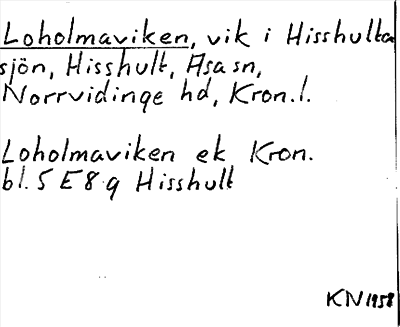 Loholmaviken, vik i Hisshulta
sjön, Hisshult, Asa sn,
Norrvidinge hd, Kron.l.
Loholmaviken ek Kron.
bl. 5 E 8 g Hisshult
KN 1958